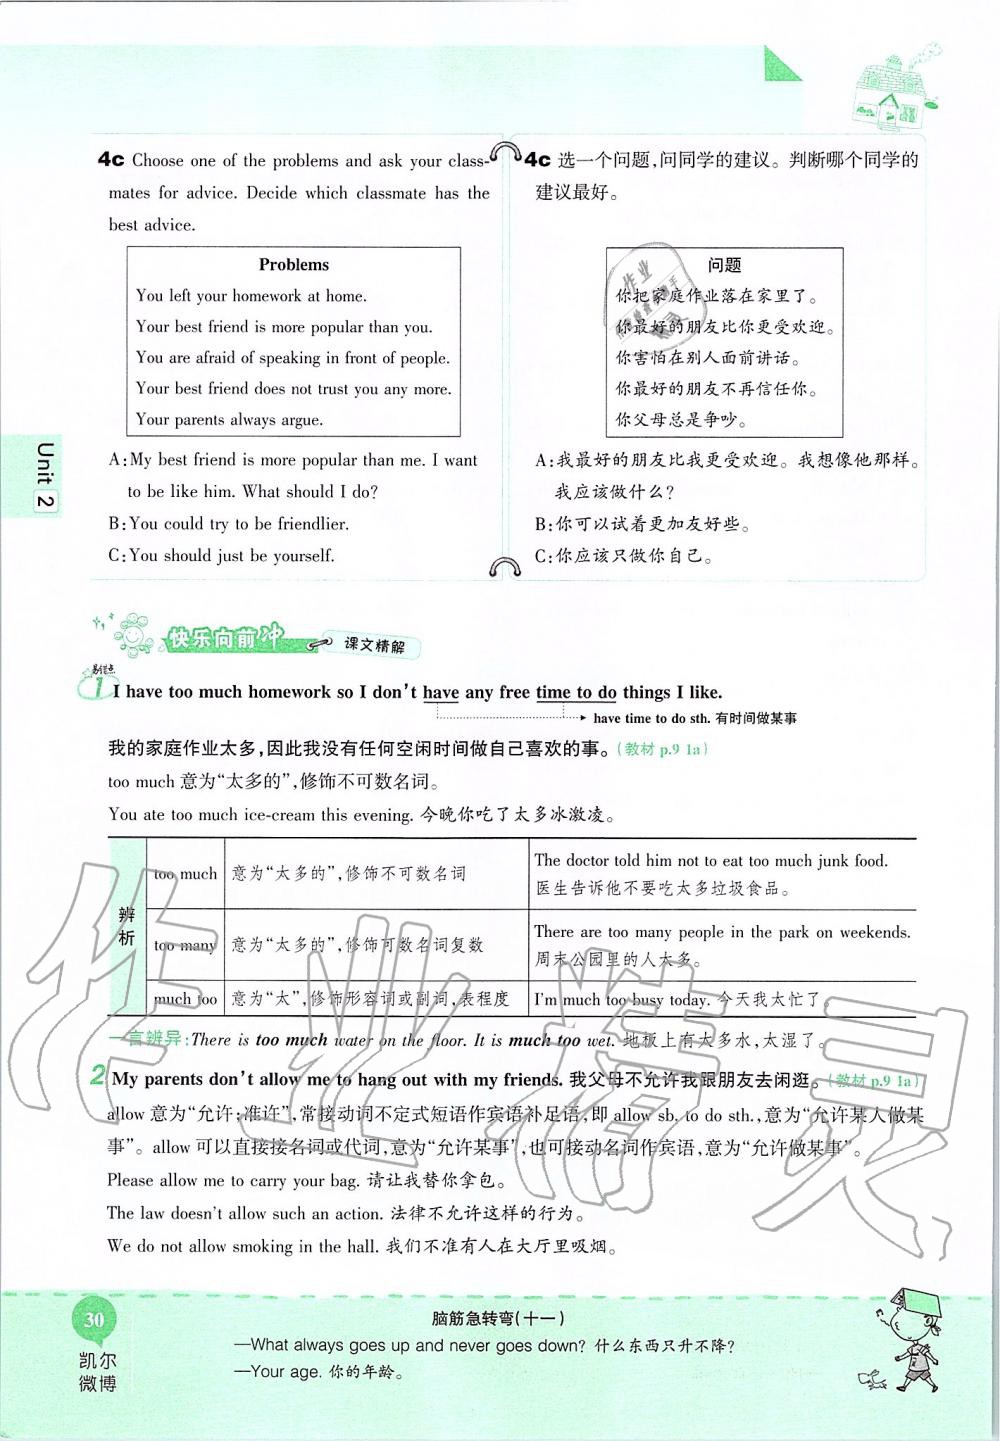 4c Choose one of the problems and ask your class-
mates for advice. Decide which classmate has the
best advice.
Problems
You left your homework at home.
Your best friend is more popular than you.
You are afraid of speaking in front of people.
Your best friend does not trust you any more.
Your parents always argue.
A:My best friend is more popular than me. I want
to be like him. What should I do?
B:You could try to be friendlier.
C:You should just be yourself.
4c 选一个问题,问同学的建议。判断哪个同学的
建议最好。
问题
你把家庭作业落在家里了。
你最好的朋友比你更受欢迎。
你害怕在别人面前讲话。
你最好的朋友不再信任你。
你父母总是争吵。
A:我最好的朋友比我更受欢迎。我想像他那样。
我应该做什么?
B:你可以试着更加友好些。
C:你应该只做你自己。
Unit 2
快乐向前冲 课文精解
易错点
1 I have too much homework so I don't have any free time to do things I like.
have time to do sth. 有时间做某事
我的家庭作业太多,因此我没有任何空闲时间做自己喜欢的事。(教材 p.9 1a)
too much 意为“太多的”,修饰不可数名词。
You ate too much ice-cream this evening. 今晚你吃了太多冰激凌。
辨析
too much 意为“太多的”,修饰不可数名词 The doctor told him not to eat too much junk food.
医生告诉他不要吃太多垃圾食品。
too many 意为“太多的”,修饰可数名词复数 There are too many people in the park on weekends.
周末公园里的人太多。
much too 意为“太”,修饰形容词或副词,表程度 I'm much too busy today. 今天我太忙了。
一言辨异:There is too much water on the floor. It is much too wet. 地板上有太多水,太湿了。
2 My parents don't allow me to hang out with my friends. 我父母不允许我跟朋友去闲逛。(教材 p.9 1a)
allow 意为“允许;准许”,常接动词不定式短语作宾语补足语,即 allow sb. to do sth.,意为“允许某人做某
事”。allow 可以直接接名词或代词,意为“允许某事”,也可接动名词作宾语,意为“允许做某事”。
Please allow me to carry your bag. 请让我替你拿包。
The law doesn't allow such an action. 法律不允许这样的行为。
We do not allow smoking in the hall. 我们不准有人在大厅里吸烟。
30
凯尔
微博
脑筋急转弯(十一)
—What always goes up and never goes down? 什么东西只升不降?
—Your age. 你的年龄。
作业精灵